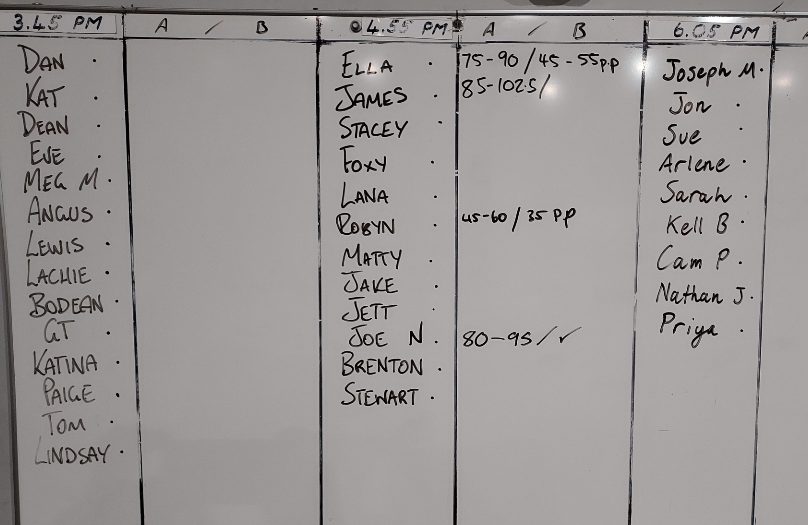 3.45 PM A / B 4.55 PM A / B 6.05 PM
DAN · ELLA · 75-90/45-55pp Joseph M.
KAT · JAMES · 85-102.5/ Jon ·
DEAN · STACEY · Sue ·
EVE · FOXY · Arlene ·
MEG M · LANA · Sarah ·
ANGUS · ROBYN · 45-60/35 PP Kell B ·
LEWIS · MATTY · Cam P.
LACHIE · JAKE · Nathan J.
BODEAN · JETT · Priya ·
GT · JOE N. 80-95/✓
KATINA · BRENTON ·
PAIGE · STEWART ·
TOM ·
LINDSAY ·